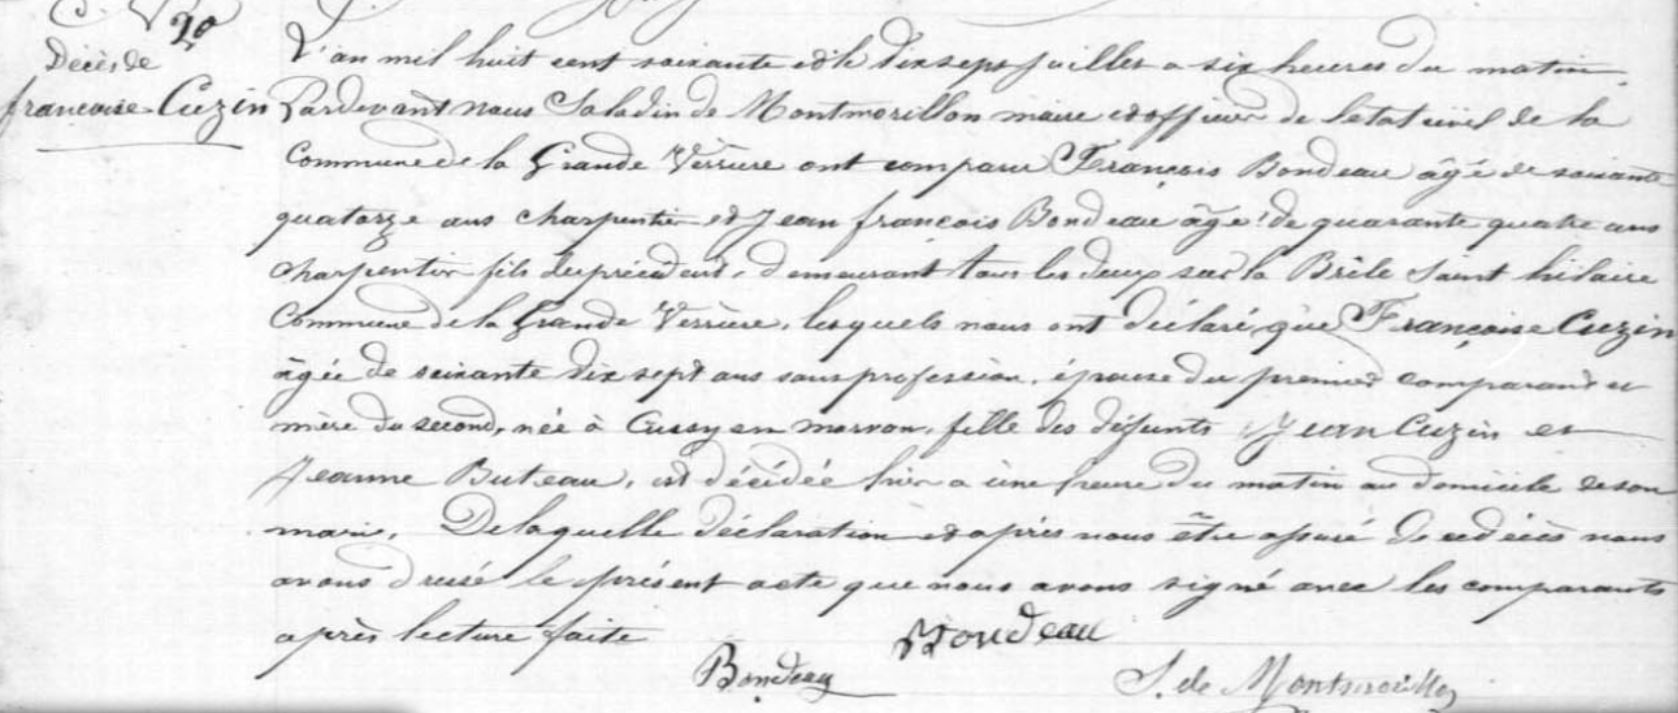 20
Décès de
françoise Cuzin
L'an mil huit cent soixante et le dix sept juillet a six heures du matin
Pardevant nous Saladin de Montmorillon maire et officier de l'etat civil de la
Commune de la Grande Verrière ont comparu François Bondeau âgé de soixante
quatorze ans charpentier et Jean françois Bondeau âgé de quarante quatre ans
charpentier fils du précédent, demeurant tous les deux sur la Brile Saint hilaire
Commune de la Grande Verrière, lesquels nous ont déclaré que Françoise Cuzin
âgée de soixante dix sept ans sans profession, épouse du premier comparant et
mère du second, née à Cussy en morvan, fille des défunts Jean Cuzin et
Jeanne Buteau, est décédée hier a une heure du matin au domicile de son
mari. De laquelle déclaration et après nous être assuré de ce décès nous
avons dressé le présent acte que nous avons signé avec les comparants
après lecture faite
Bondeau
Bondeau
S. de Montmorillon